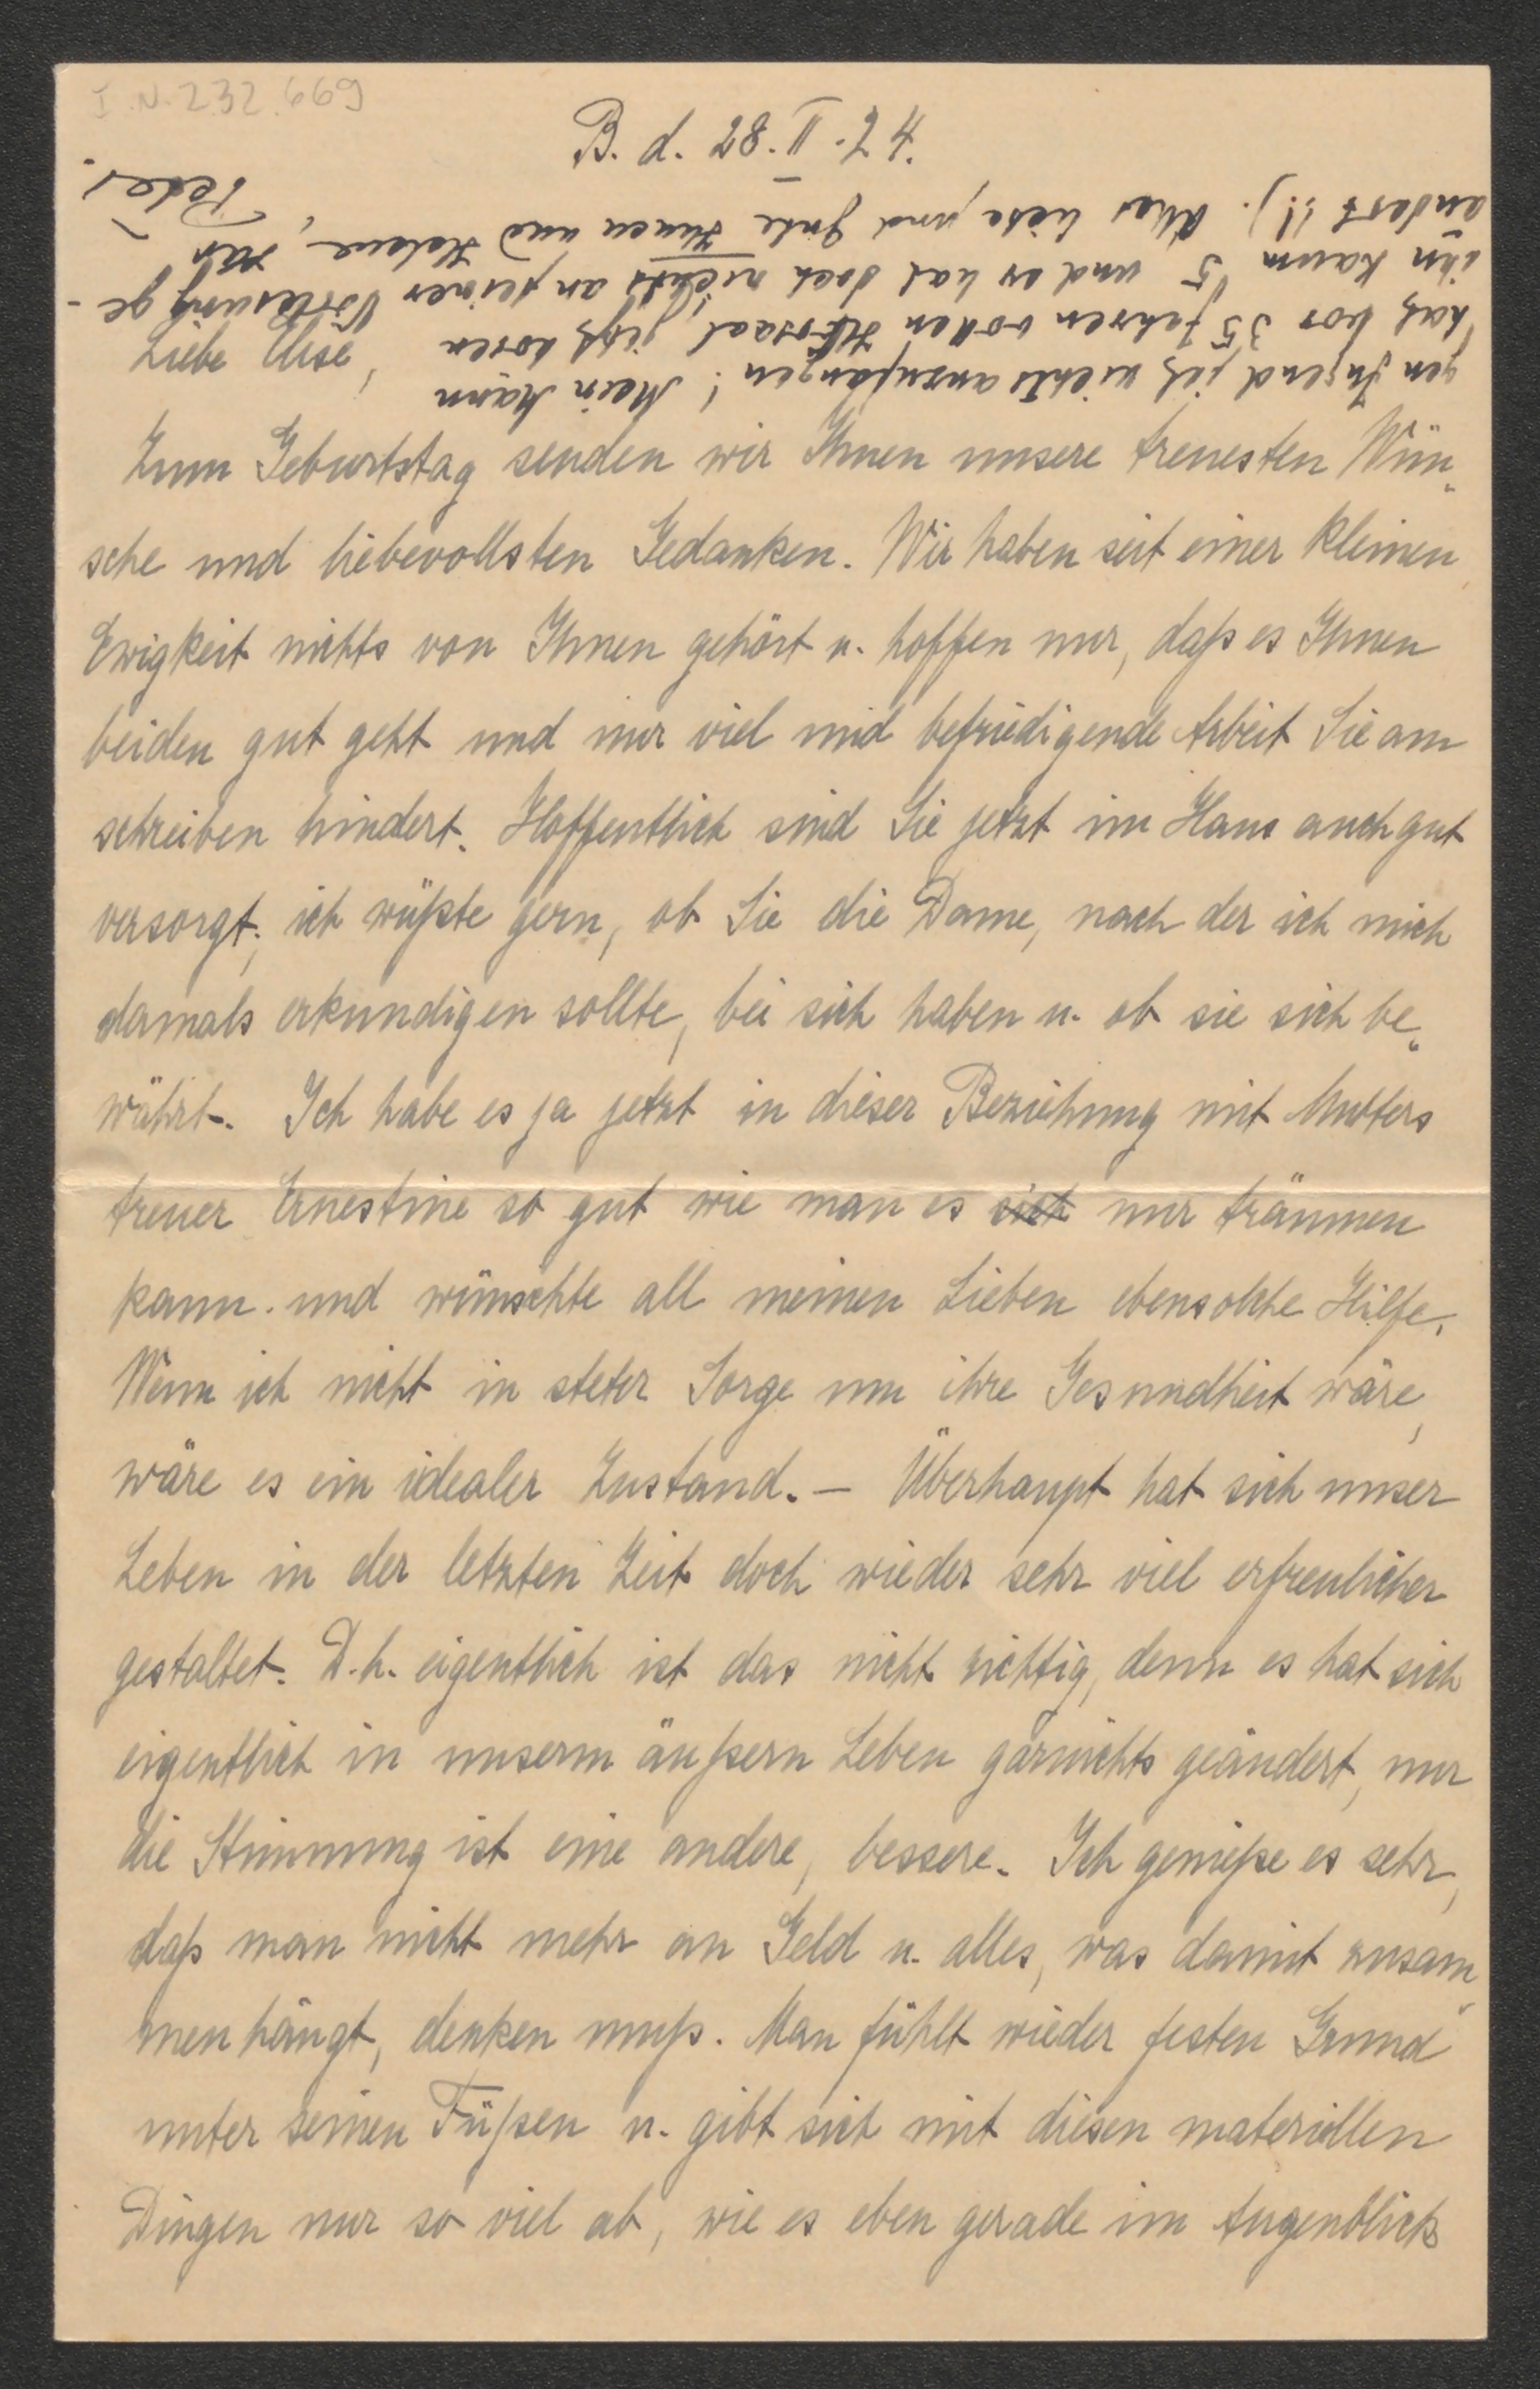 I.N. 232.669
B. d. 28.II.24.
Liebe Elise,
Zum Geburtstag senden wir Ihnen unsere treuesten Wün-
sche und liebevollsten Gedanken. Wir haben seit einer kleinen
Ewigkeit nichts von Ihnen gehört u. hoffen nur, daß es Ihnen
beiden gut geht und nur viel und befriedigende Arbeit Sie am
schreiben hindert. Hoffentlich sind Sie jetzt im Haus auch gut
versorgt; ich wüßte gern, ob Sie die Dame, nach der ich mich
damals erkundigen sollte, bei sich haben u. ob sie sich be-
währt. Ich habe es ja jetzt in dieser Beziehung mit Mutters
treuer Ernestine so gut wie man es sich nur träumen
kann und wünschte all meinen Lieben ebensolche Hilfe.
Wenn ich nicht in steter Sorge um ihre Gesundheit wäre,
wäre es ein idealer Zustand. — Überhaupt hat sich unser
Leben in der letzten Zeit doch wieder sehr viel erfreulicher
gestaltet. D.h. eigentlich ist das nicht richtig, denn es hat sich
eigentlich in unserm äußern Leben garnichts geändert, nur
die Stimmung ist eine andere, bessere. Ich genieße es sehr,
daß man nicht mehr an Geld u. alles, was damit zusam-
menhängt, denken muß. Man fühlt wieder festen Grund
unter seinen Füßen u. gibt sich mit diesen materiellen
Dingen nur so viel ab, wie es eben gerade im Augenblick
gen Jugend ist nichts anzufangen! Mein Mann
hat vor 35 Jahren vollen Hörsaal, jetzt hören
ihn kaum 5 und er hat doch nichts an seiner Vorlesung ge-
ändert!!). Alles Liebe und Gute Ihnen und Helene,